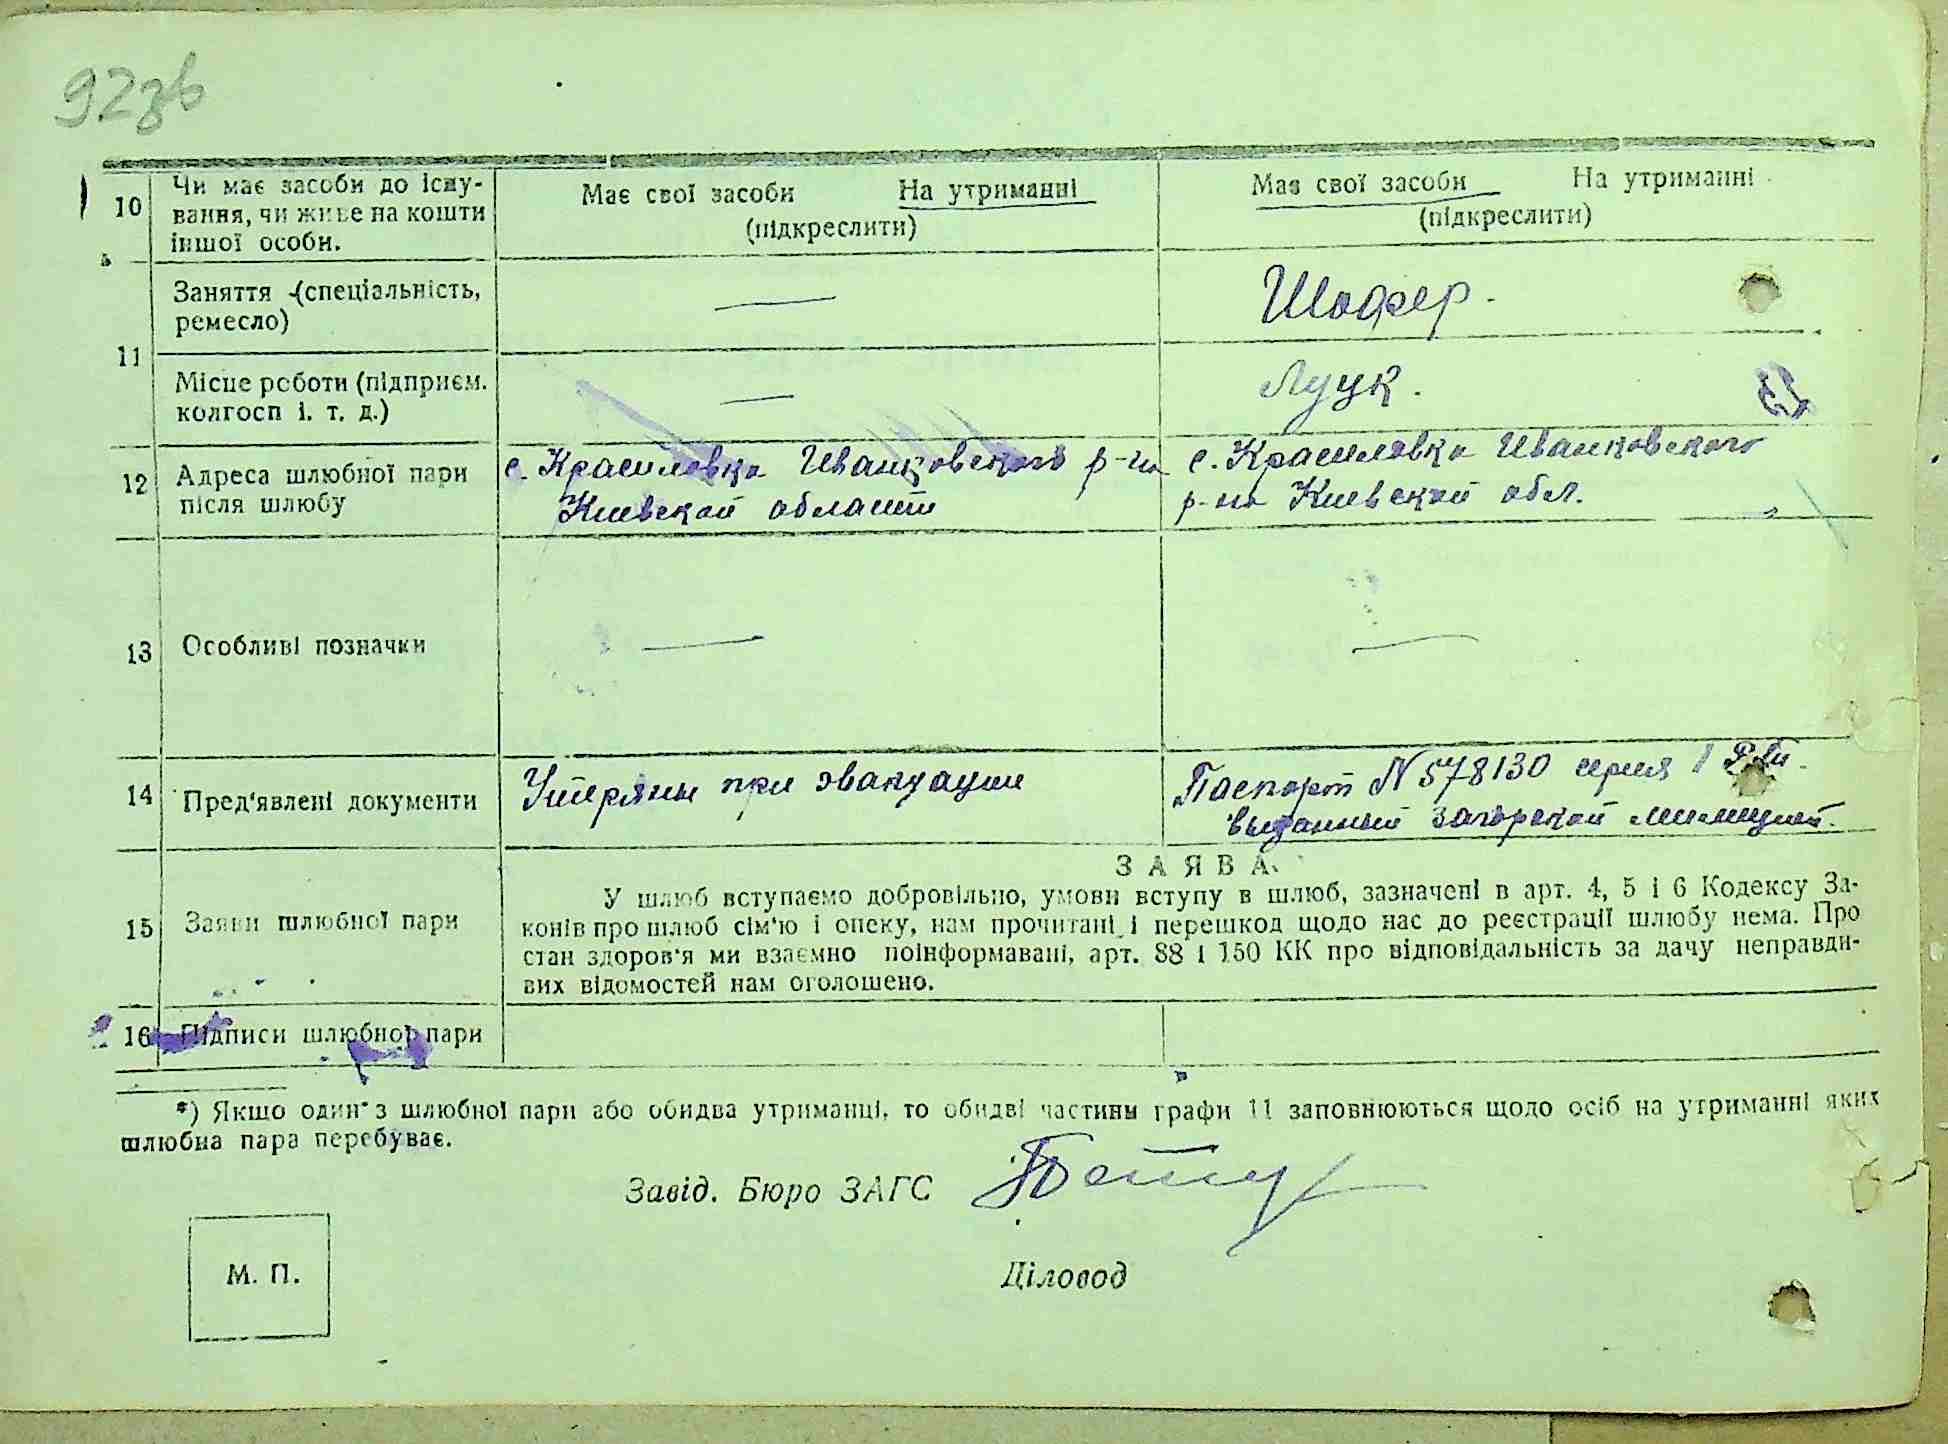 92зв
10 Чи має засоби до існу-
вання, чи живе на кошти
іншої особи.
Має свої засоби На утриманні
(підкреслити)
Має свої засоби На утриманні
(підкреслити)
11 Заняття (спеціальність,
ремесло)
—
Шофер.
Місце роботи (підприєм.
колгосп і. т. д.)
—
Луцк.
12 Адреса шлюбної пари
після шлюбу
с. Красиловка Иванковского р-на
Киевской области
с. Красиловка Иванковского
р-на Киевской обл.
13 Особливі позначки
—
—
14 Пред'явлені документи
Утеряны при эвакуации
Паспорт N 578130 серия
выданный Загорской милицией.
15 Заяви шлюбної пари
ЗАЯВА
У шлюб вступаємо добровільно, умови вступу в шлюб, зазначені в арт. 4, 5 і 6 Кодексу За-
конів про шлюб сім'ю і опеку, нам прочитані і перешкод щодо нас до реєстрації шлюбу нема. Про
стан здоров'я ми взаємно поінформавані, арт. 88 і 150 КК про відповідальність за дачу неправди-
вих відомостей нам оголошено.
16 Підписи шлюбної пари
*) Якщо один з шлюбної пари або обидва утриманці, то обидві частини графи 11 заповнюються щодо осіб на утриманні яких
шлюбна пара перебуває.
Завід. Бюро ЗАГС
М. П.
Діловод